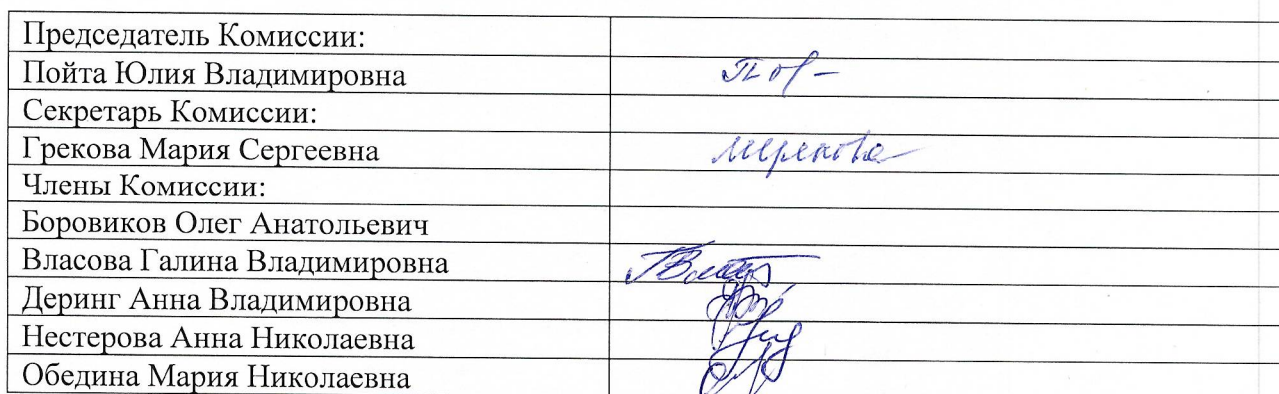 Председатель Комиссии:
Пойта Юлия Владимировна
Секретарь Комиссии:
Грекова Мария Сергеевна
Члены Комиссии:
Боровиков Олег Анатольевич
Власова Галина Владимировна
Деринг Анна Владимировна
Нестерова Анна Николаевна
Обедина Мария Николаевна